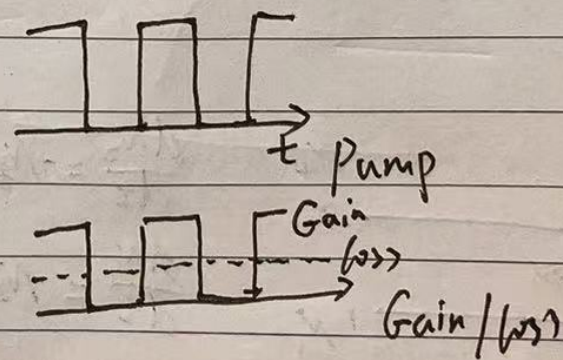 t
Pump
Gain
loss
Gain/loss